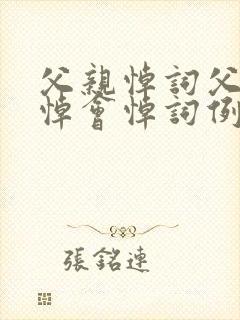 父親悼詞父
悼會悼詞例
張銘連